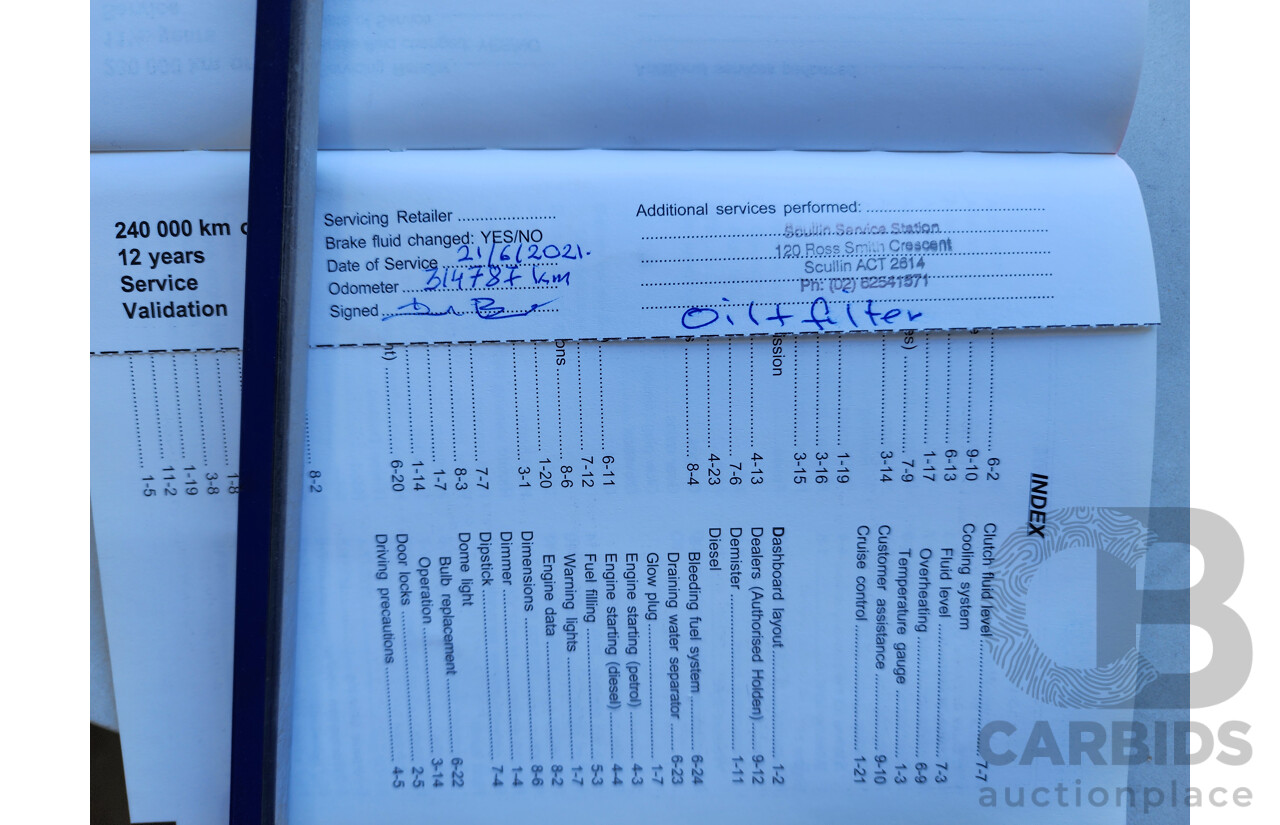 240 000 km
12 years
Service
Validation
Servicing Retailer ....................
Brake fluid changed: YES/NO
Date of Service 21/6/2021.
Odometer 314787 km
Signed
Additional services performed: ....................
Scullin Service Station
120 Ross Smith Crescent
Scullin ACT 2614
Ph: (02) 62541571
Oil + filter
INDEX
6-2
9-10
6-13
1-17
7-9
3-14
1-19
3-16
3-15
ission
4-13
7-6
4-23
8-4
6-11
7-12
ons
8-6
1-20
3-1
7-7
8-3
1-7
1-14
6-20
8-2
1-8
3-8
1-19
11-2
1-5
Clutch fluid level 7-7
Cooling system
Fluid level 7-3
Overheating 6-9
Temperature gauge 1-3
Customer assistance 9-10
Cruise control 1-21
Dashboard layout 1-2
Dealers (Authorised Holden) 9-12
Demister 1-11
Diesel
Bleeding fuel system 6-24
Draining water separator 6-23
Glow plug 1-7
Engine starting (petrol) 4-3
Engine starting (diesel) 4-4
Fuel filling 5-3
Warning lights 1-7
Engine data 8-2
Dimensions 8-6
Dimmer 1-4
Dipstick 7-4
Dome light
Bulb replacement 6-22
Operation 3-14
Door locks 2-5
Driving precautions 4-5
CARBIDS
auctionplace